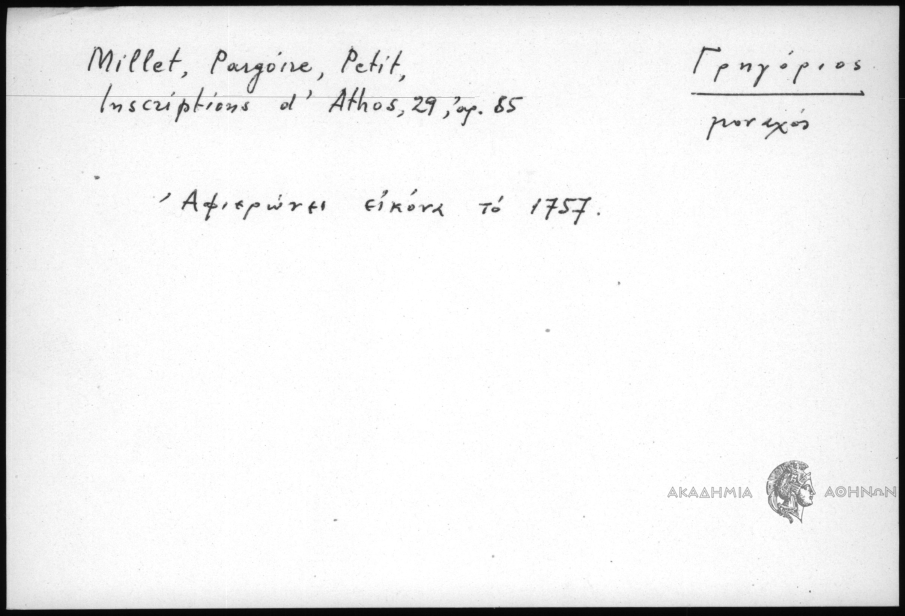 Millet, Pargóire, Petit,
Inscriptions d' Athos, 29, ἀρ. 85
Γρηγόριος
μοναχός
Ἀφιερώνει εἰκόνα τό 1757.
ΑΚΑΔΗΜΙΑ ΑΘΗΝΩΝ